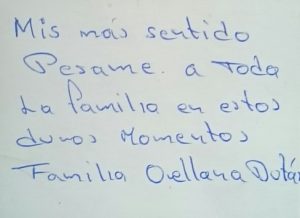 Mis más sentido
Pesame. a toda
La familia en estos
duros Momentos
Familia Orellana Dután